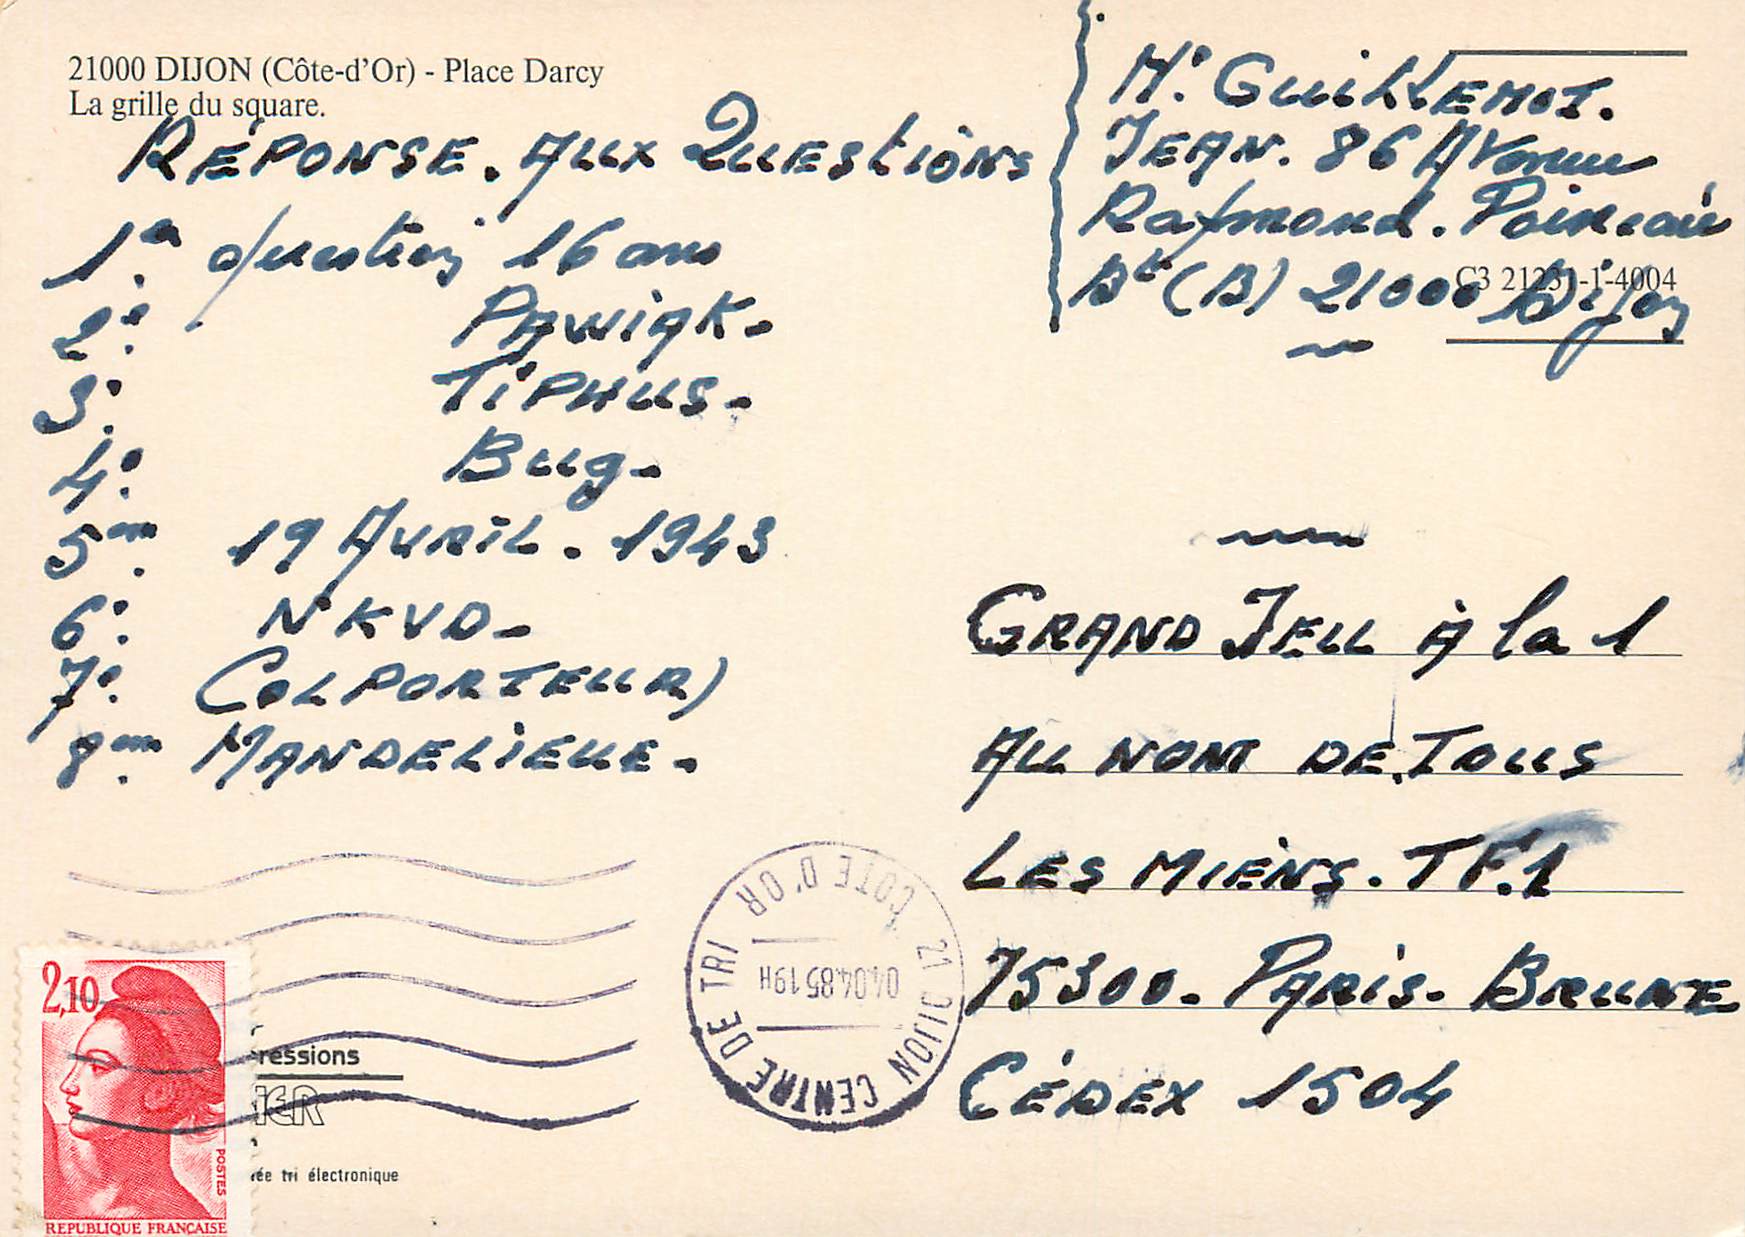 21000 DIJON (Côte-d'Or) - Place Darcy
La grille du square.
RÉPONSE. AUX QUESTIONS
1er question 16 ans
2e PAWIAK-
3e TIPHUS-
4e Bug-
5em 19 AVRIL. 1943
6e NKVD-
7e COLPORTEUR)
8em MANDELIEUE-
Mr GUILLEMOT.
JEAN. 86 AVenue
Raymond. Poincaré
Bt (B) 21000 Dijon
C3 21231-1-4004
GRAND JEU À la 1
AU NOM DE.TOUS
LES MIENS. TF.1
75300- PARIS- BRUNE
CÉDEX 1504
21 DIJON CENTRE DE TRI
COTE D'OR
04.04.85 19H
2,10
POSTES
REPUBLIQUE FRANÇAISE
ressions
IER
ée tri électronique